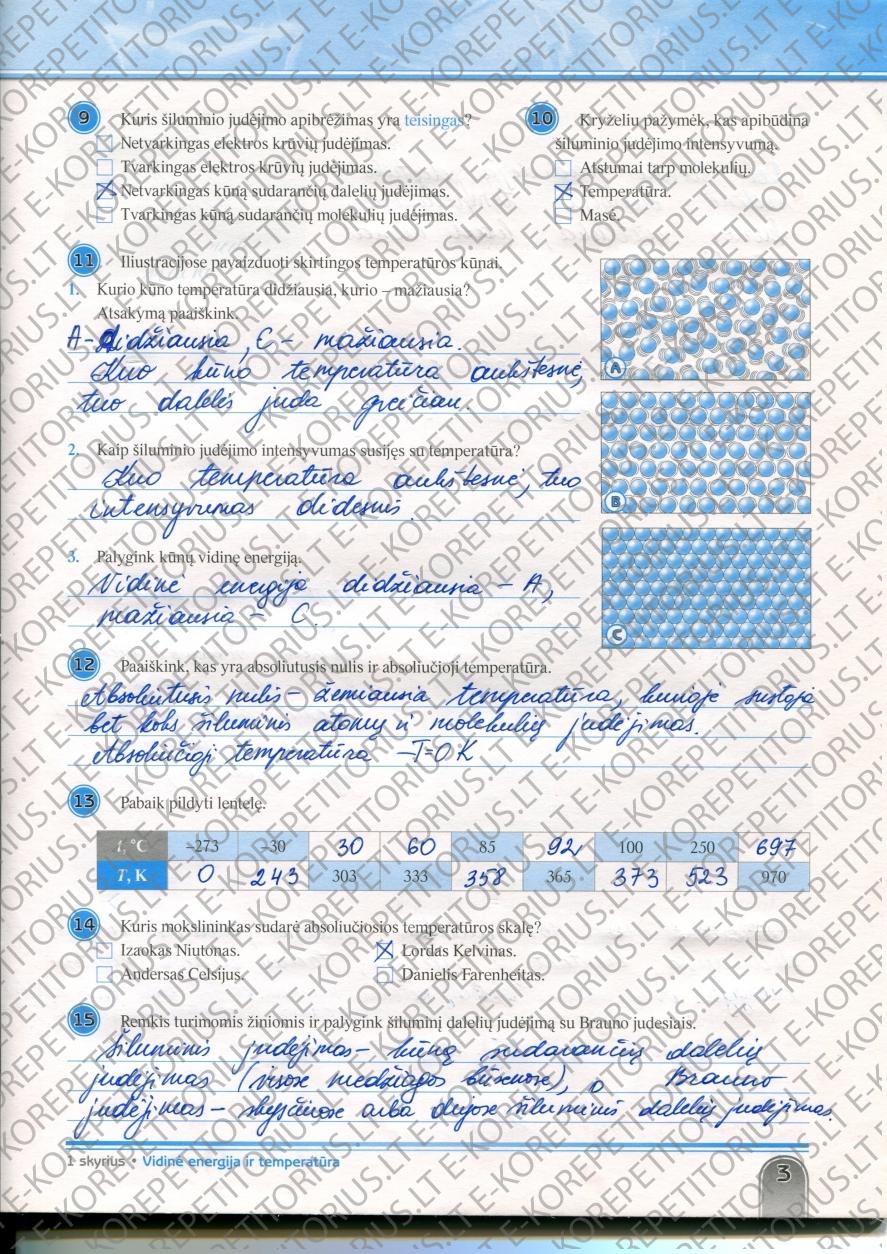 9 Kuris šiluminio judėjimo apibrėžimas yra teisingas?
Netvarkingas elektros krūvių judėjimas.
Tvarkingas elektros krūvių judėjimas.
Netvarkingas kūną sudarančių dalelių judėjimas.
Tvarkingas kūną sudarančių molekulių judėjimas.
10 Kryželiu pažymėk, kas apibūdina
šiluminio judėjimo intensyvumą.
Atstumai tarp molekulių.
Temperatūra.
Masė.
11 Iliustracijose pavaizduoti skirtingos temperatūros kūnai.
1. Kurio kūno temperatūra didžiausia, kurio – mažiausia?
Atsakymą paaiškink.
A - didžiausia, C - mažiausia.
Kuo kūno temperatūra aukštesnė,
tuo dalelės juda greičiau.
A
2. Kaip šiluminio judėjimo intensyvumas susijęs su temperatūra?
Kuo temperatūra aukštesnė, tuo
intensyvumas didesnis.
B
3. Palygink kūnų vidinę energiją.
Vidinė energija didžiausia - A,
mažiausia - C.
C
12 Paaiškink, kas yra absoliutusis nulis ir absoliučioji temperatūra.
Absoliutusis nulis - žemiausia temperatūra, kurioje sustoja
bet koks šiluminis atomų ir molekulių judėjimas.
Absoliučioji temperatūra - T=0 K
13 Pabaik pildyti lentelę.
t, °C –273 –30 30 60 85 92 100 250 697
T, K 0 243 303 333 358 365 373 523 970
14 Kuris mokslininkas sudarė absoliučiosios temperatūros skalę?
Izaokas Niutonas. Lordas Kelvinas.
Andersas Celsijus. Danielis Farenheitas.
15 Remkis turimomis žiniomis ir palygink šiluminį dalelių judėjimą su Brauno judesiais.
Šiluminis judėjimas - kūną sudarančių dalelių
judėjimas (visose medžiagos būsenose), o Brauno
judėjimas - skysčiuose arba dujose šiluminis dalelių judėjimas.
1 skyrius • Vidinė energija ir temperatūra
3
E-KOREPETITORIUS.LT